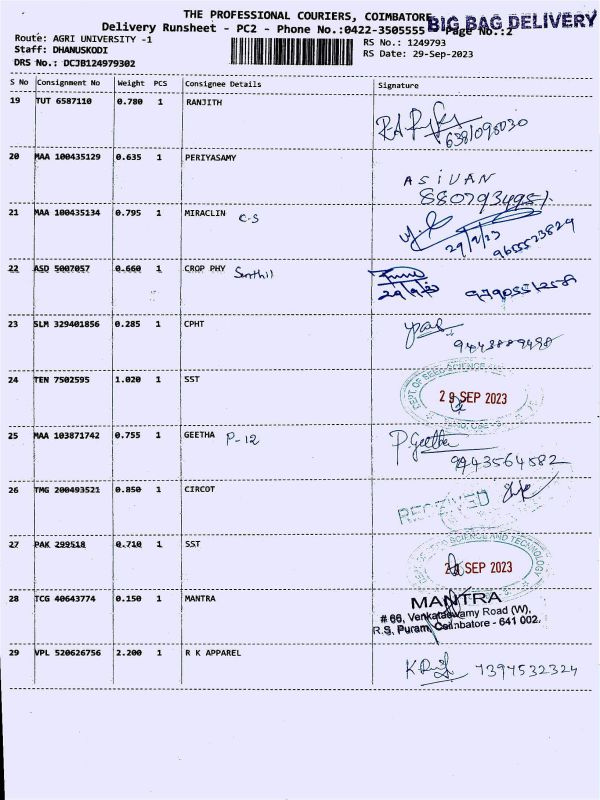 THE PROFESSIONAL COURIERS, COIMBATORE
BIG BAG DELIVERY
Delivery Runsheet - PC2 - Phone No.:0422-3505555 Page No.:2
Route: AGRI UNIVERSITY -1
RS No.: 1249793
Staff: DHANUSKODI
RS Date: 29-Sep-2023
DRS No.: DCJB124979302
S No Consignment No Weight PCS Consignee Details Signature
19 TUT 6587110 0.780 1 RANJITH
6381098030
20 MAA 100435129 0.635 1 PERIYASAMY
ASIVAN
8807934951
21 MAA 100435134 0.795 1 MIRACLIN C-S
29/9/23
9655523829
22 ASD 5007057 0.660 1 CROP PHY Senthil
29/9/23
23 SLM 329401856 0.285 1 CPHT
9443889498
24 TEN 7502595 1.020 1 SST
DEPT. OF SEED SCIENCE
29 SEP 2023
25 MAA 103871742 0.755 1 GEETHA P-12
P. Geetha
9443564582
26 TMG 200493521 0.850 1 CIRCOT
RECEIVED
27 PAK 299518 0.710 1 SST
DEPT. OF SEED SCIENCE AND TECHNOLOGY
SEP 2023
28 TCG 40643774 0.150 1 MANTRA
MANTRA
# 66, Venkataswamy Road (W),
R.S. Puram, Coimbatore - 641 002.
29 VPL 520626756 2.200 1 R K APPAREL
7397532324